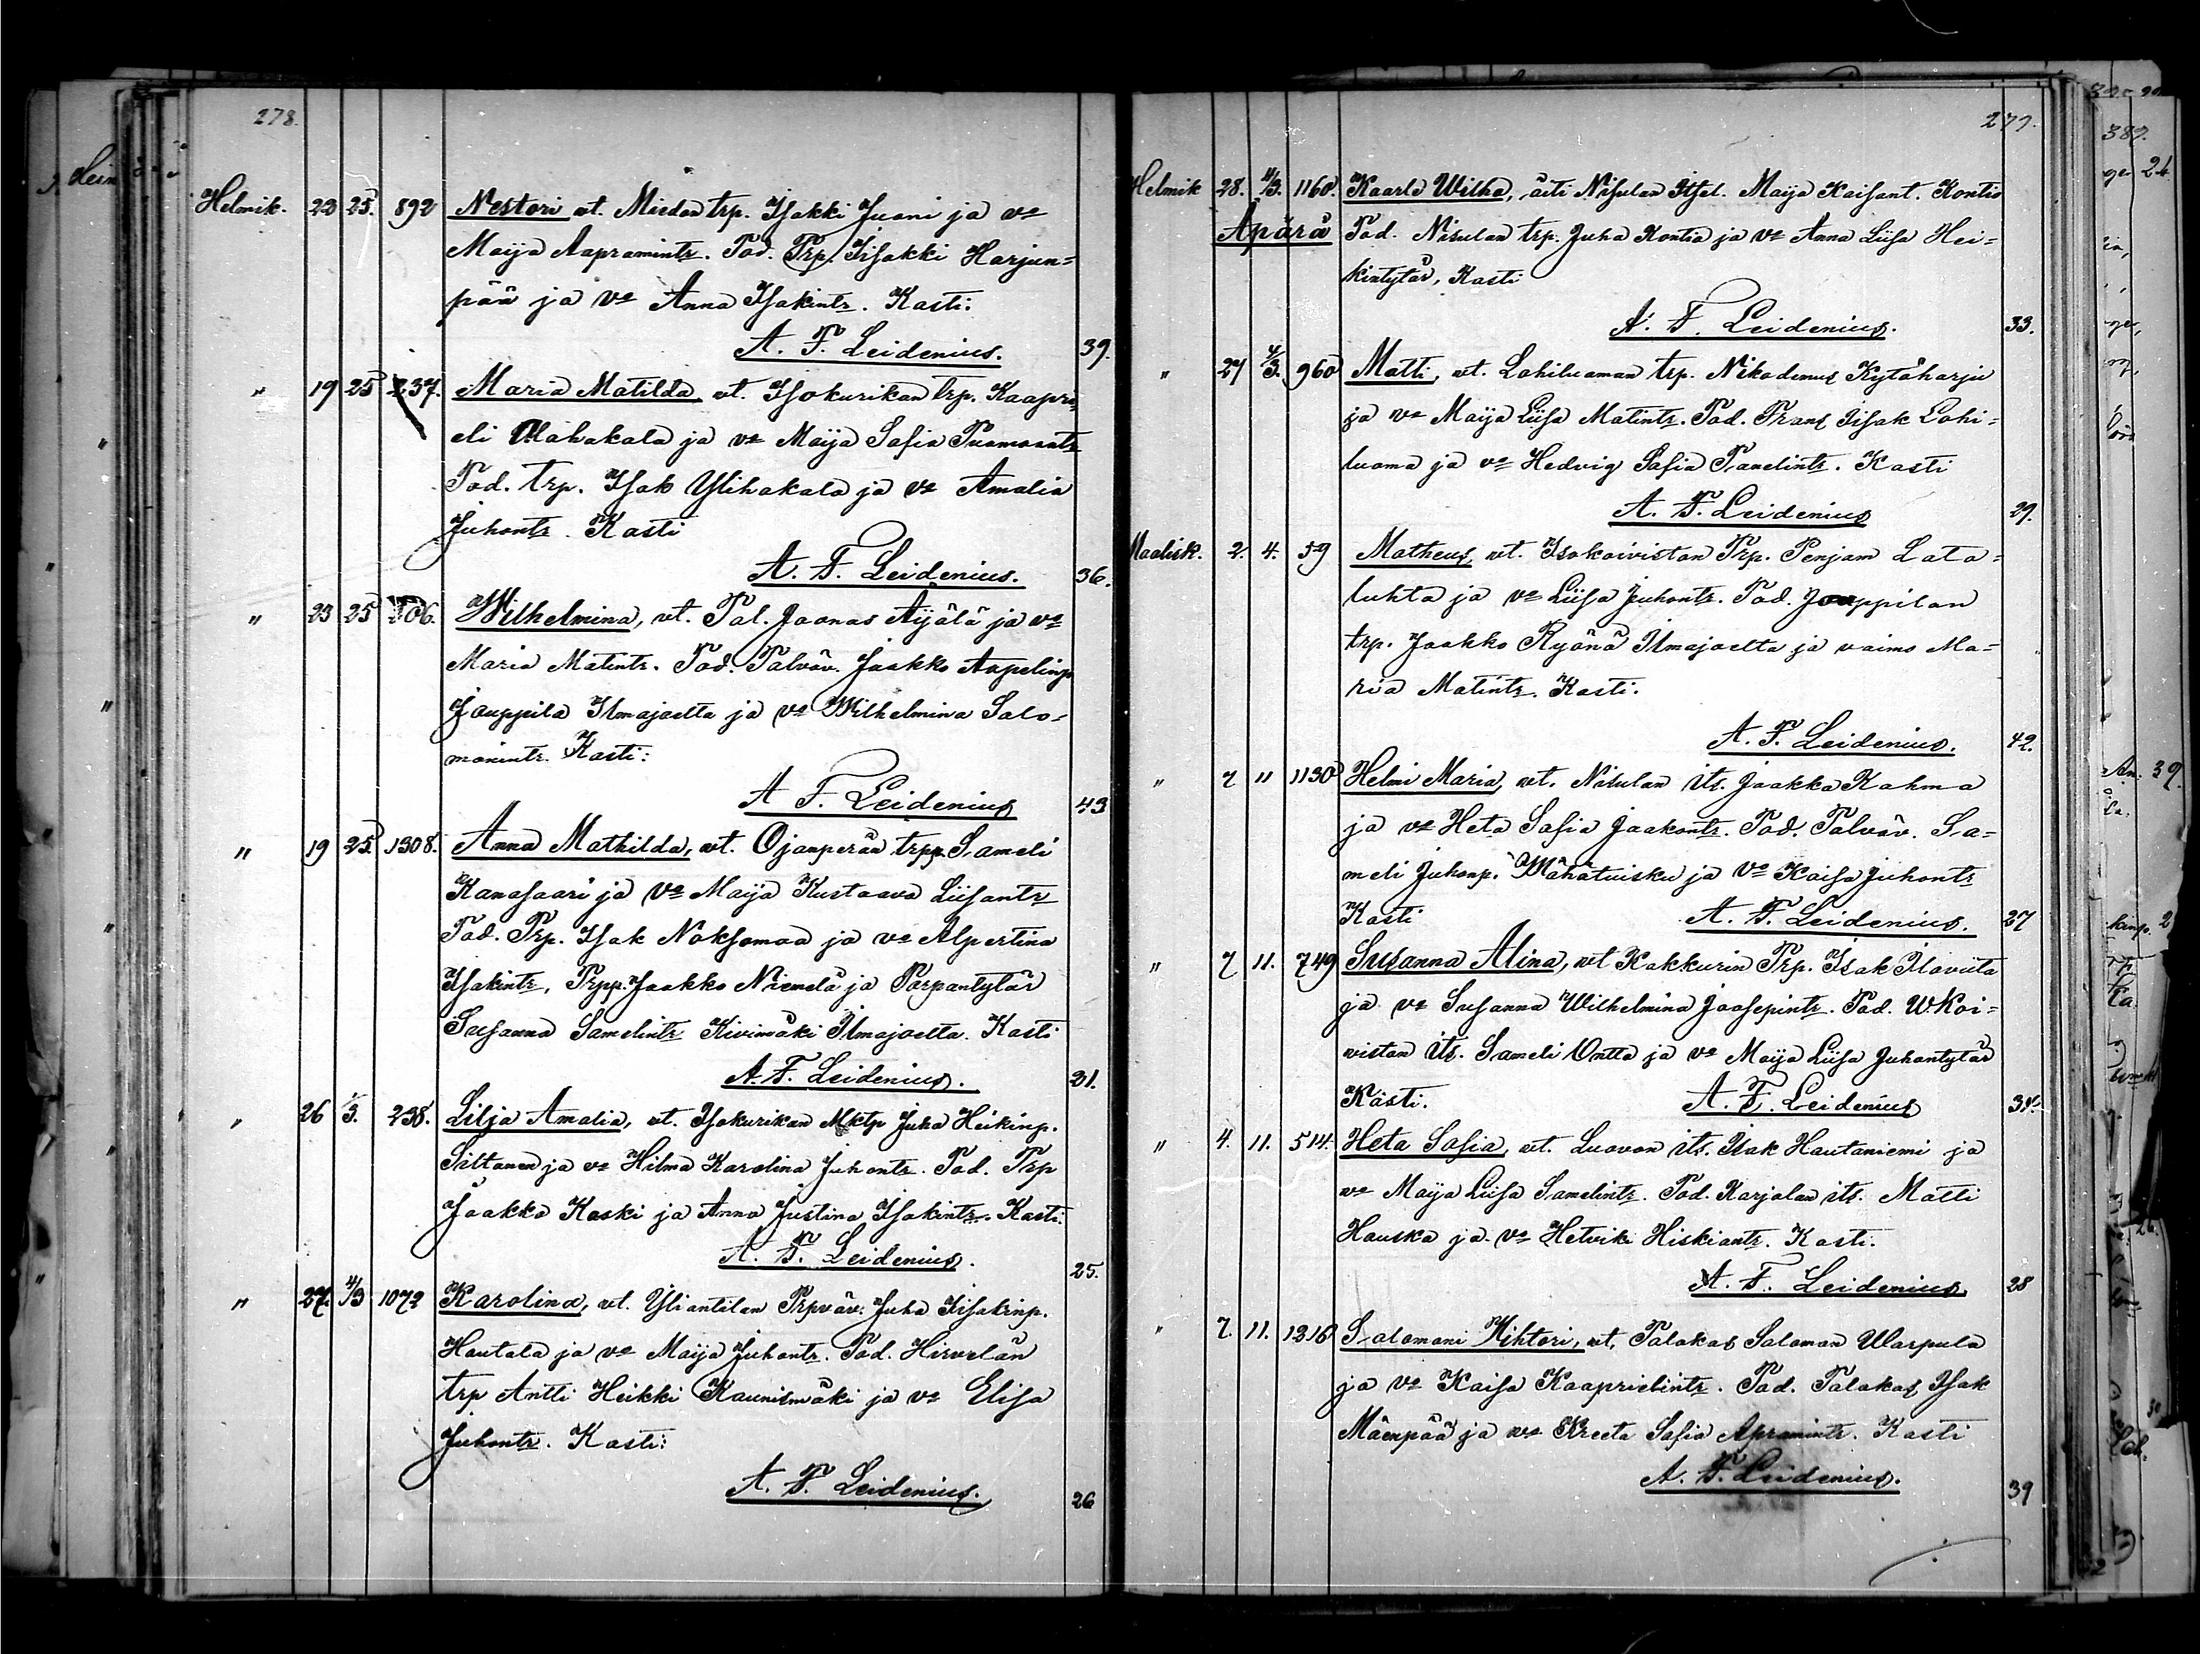 278.
Helmik. 23 25. 892 Nestori vt. Miedon trp. Isakki Juoni ja vo
Maija Aapramintr. Tod. Trp. Iisakki Harjun=
pää ja vo Anna Isakintr. Kasti:
A. F. Leidenius. 39.
" 19 25 237. Maria Matilda vt. Isokurikan trp. Kaapri
eli Alahakala ja vo Maija Sofia Tuomaantr
Tod. trp. Isak Ylihakala ja vo Amalia
Juhontr. Kasti
A. F. Leidenius. 36.
" 23 25 706. Wilhelmina, vt. Tal. Joonas Äijälä ja vo
Maria Matintr. Tod. Talväv. Jaakko Aapelinp
Jouppila Ilmajoelta ja vo Wilhelmina Salo=
monintr. Kasti:
A F. Leidenius 43
" 19 25 1308. Anna Mathilda, vt. Ojanperän trpp. Sameli
Kanasaari ja vo Maija Kustaava Liisantr
Tod. Trp. Isak Noksomaa ja vo Alpertina
Isakintr, Trpp. Jaakko Niemelä ja Torpantytär
Susanna Samelintr Kivimäki Ilmajoelta. Kasti
A. F. Leidenius. 21.
" 26 1/3. 238. Lilja Amalia, vt. Isokurikan Mktp Juha Heikinp.
Siltanen ja vo Hilma Karolina Juhontr. Tod. Trp
Jaakko Koski ja Anna Justina Isakintr. Kasti:
A. F. Leidenius. 25.
" 27. 4/3 1072 Karolina, vt. Yliantilan Trpväv. Juha Iisakinp.
Hautala ja vo Maija Juhontr. Tod. Hirvelän
trp Antti Heikki Kaunismäki ja vo Elisa
Juhontr. Kasti:
A. F. Leidenius. 26
279.
Helmik 28. 4/3. 1160. Kaarlo Wilho, äiti Nisulan Itsel. Maija Kaisant. Kontio
Äpärä Tod. Nisulan trp. Juha Kontio ja vo Anna Liisa Hei=
kintytär, Kasti
A. F. Leidenius. 33.
" 27 4/3. 960 Matti, vt. Lohiluoman trp. Nikodemus Kytöharju
ja vo Maija Liisa Matintr. Tod. Frans Iisak Lohi=
luoma ja vo Hedvig Sofia Tanelintr. Kasti
A. F. Leidenius 29.
Maalisk. 2. 4. 59 Matheus, vt. Isokoivistan Trp. Penjam Lato=
luhta ja vo Liisa Juhontr. Tod. Jouppilan
trp. Jaakko Ryönä Ilmajoelta ja vaimo Ma=
ria Matintr. Kasti.
A. F. Leidenius. 42.
" 7 11 1130 Helmi Maria, vt. Nisulan its. Jaakko Kahma
ja vo Heta Sofia Jaakontr. Tod. Talväv. Sa=
meli Juhonp. Mähätuisku ja vo Kaisa Juhontr
Kasti A. F. Leidenius. 27
" 7 11. 749 Susanna Alina, vt Kakkurin Trp. Isak Iloviita
ja vo Susanna Wilhelmina Joosepintr. Tod. W. Koi=
vistan its. Sameli Ontto ja vo Maija Liisa Juhontytär
Kasti. A. F. Leidenius
" 4. 11. 514. Heta Sofia, vt. Luovon its. Isak Hautaniemi ja
vo Maija Liisa Samelintr. Tod. Karjalan its. Matti
Hauska ja vo Hetvik Hiskiantr. Kasti.
A. F. Leidenius. 28
" 7. 11. 1316 Salomoni Vihtori, vt. Talokas Saloman Warpula
ja vo Kaisa Kaaprielintr. Tod. Talokas Isak
Mäenpää ja vo Kreeta Sofia Apramintr. Kasti
A. F. Leidenius. 39